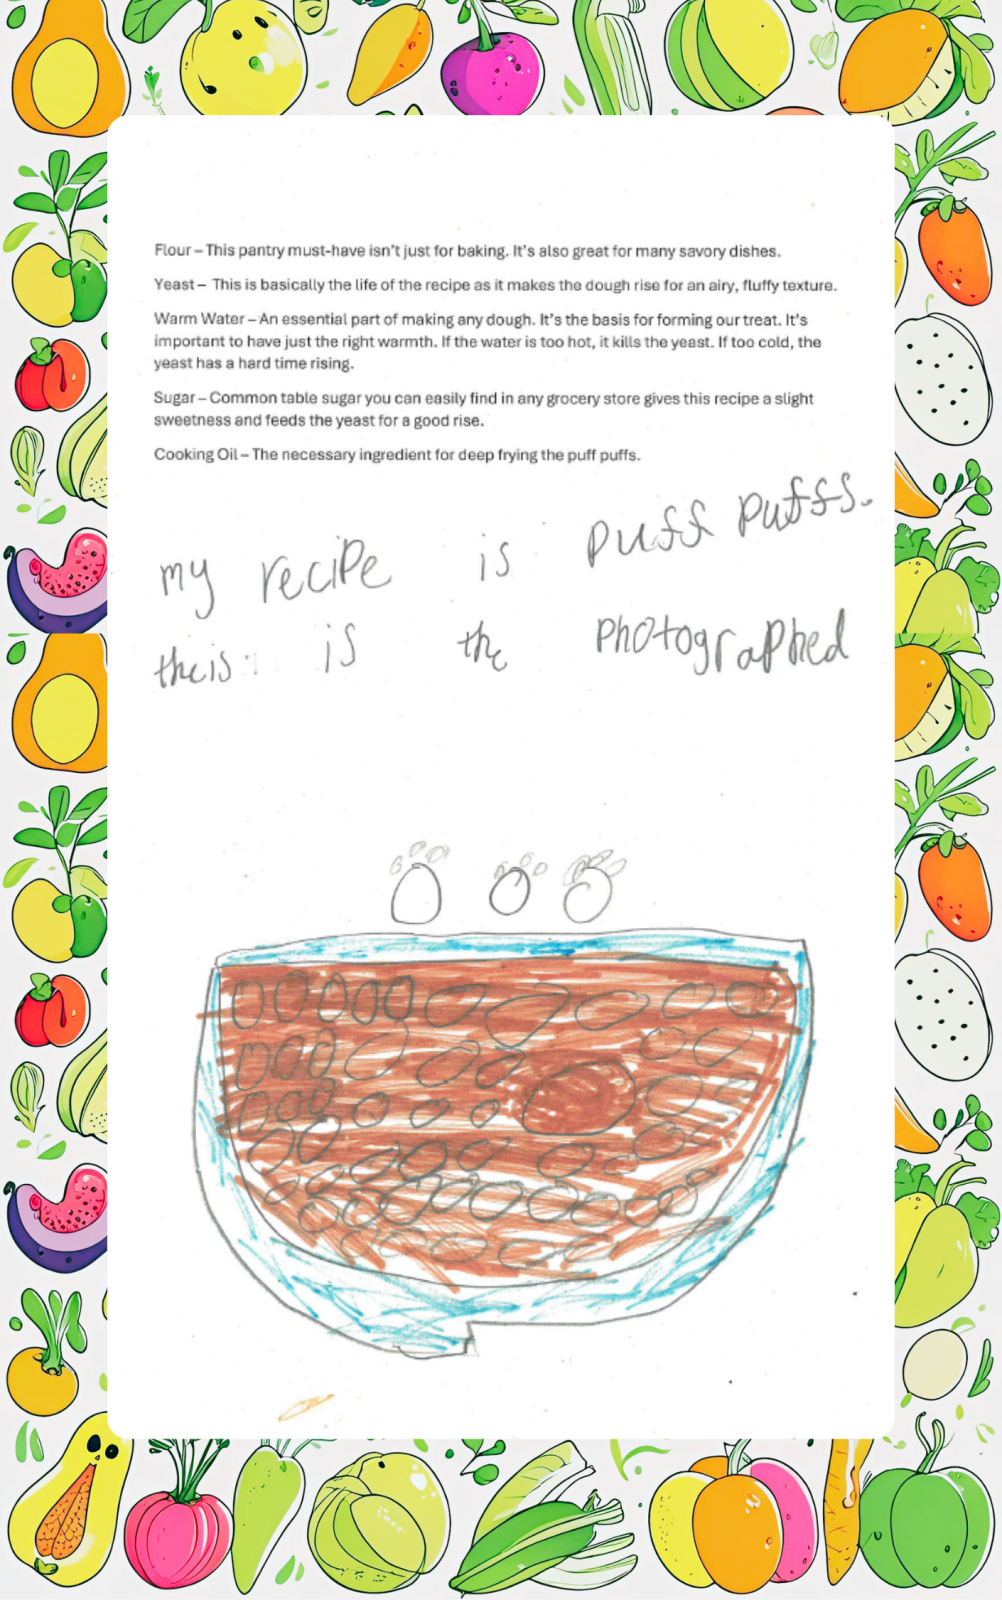 Flour – This pantry must-have isn't just for baking. It's also great for many savory dishes.
Yeast – This is basically the life of the recipe as it makes the dough rise for an airy, fluffy texture.
Warm Water – An essential part of making any dough. It's the basis for forming our treat. It's
important to have just the right warmth. If the water is too hot, it kills the yeast. If too cold, the
yeast has a hard time rising.
Sugar – Common table sugar you can easily find in any grocery store gives this recipe a slight
sweetness and feeds the yeast for a good rise.
Cooking Oil – The necessary ingredient for deep frying the puff puffs.
my recipe is puff puffs.
theis is the photographed